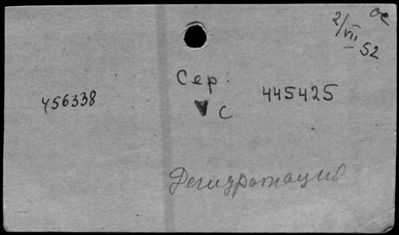 ос
2/VII-52
Сер.
456338 445425
С
Дегидратация